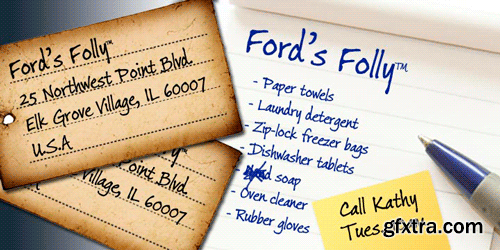 Ford's Folly™
25 Northwest Point Blvd.
Elk Grove Village, IL 60007
U.S.A
Point Blvd.
Village, IL 60007
Ford's Folly™
- Paper towels
- Laundry detergent
- Zip-lock freezer bags
- Dishwasher tablets
- soap
- Oven cleaner
- Rubber gloves
Call Kathy
gfxtra.com